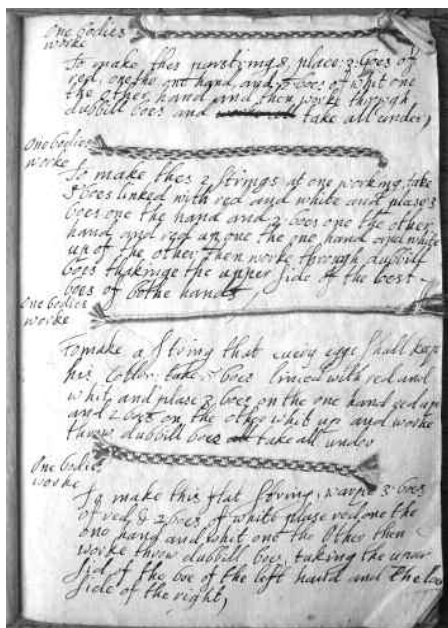 One bodies
worke
To make thes pursstrings, place 3 boes of
red, one the ont hand, and 2 boes of whit one
the other hand and then worke through
dubbill boes and take all under,
One bodies
worke
To make thes 2 strings at one working, take
5 boes linked with red and white and plase 3
boes one the hand and 2 boes one the other
hand and red up one the one hand and white
up of the other then worke through dubbill
boes thakinge the upper side of the best
boes of bothe hands,
One bodies
worke
To make a string that every egge shall kepe
his coller take 5 boes linced with red and
whit, and plase 3 boes on the one hand red up
and 2 boes on the other whit up and worke
throw dubbill boes take all under
One bodies
worke
To make this flat string, warpe 3 boes
of red, & 2 boes of white plase red one the
one hand and whit one the other then
worke throw dubbill boe, taking the upar
sid of the boe of the left hand and the low
side of the right,